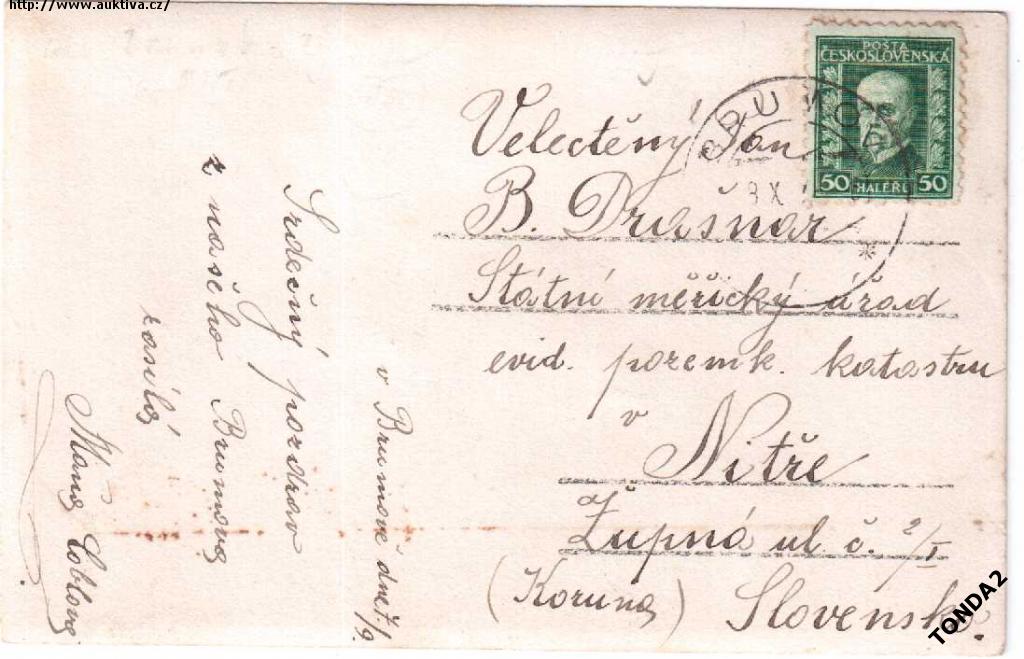 http://www.auktiva.cz/
POŠTA
ČESKOSLOVENSKÁ
50 HALÉŘŮ 50
BRUMOV
Velectěný Pan
B. Drasnar
Státní měřický úřad
evid. pozemk. katastru
v
Nitře
Župná ul. č. 2/I
(Koruna) Slovensko.
v Brumově dne 7/9.
Srdečný pozdrav
z našeho Brumova
zasílá
Máňa
TONDA2